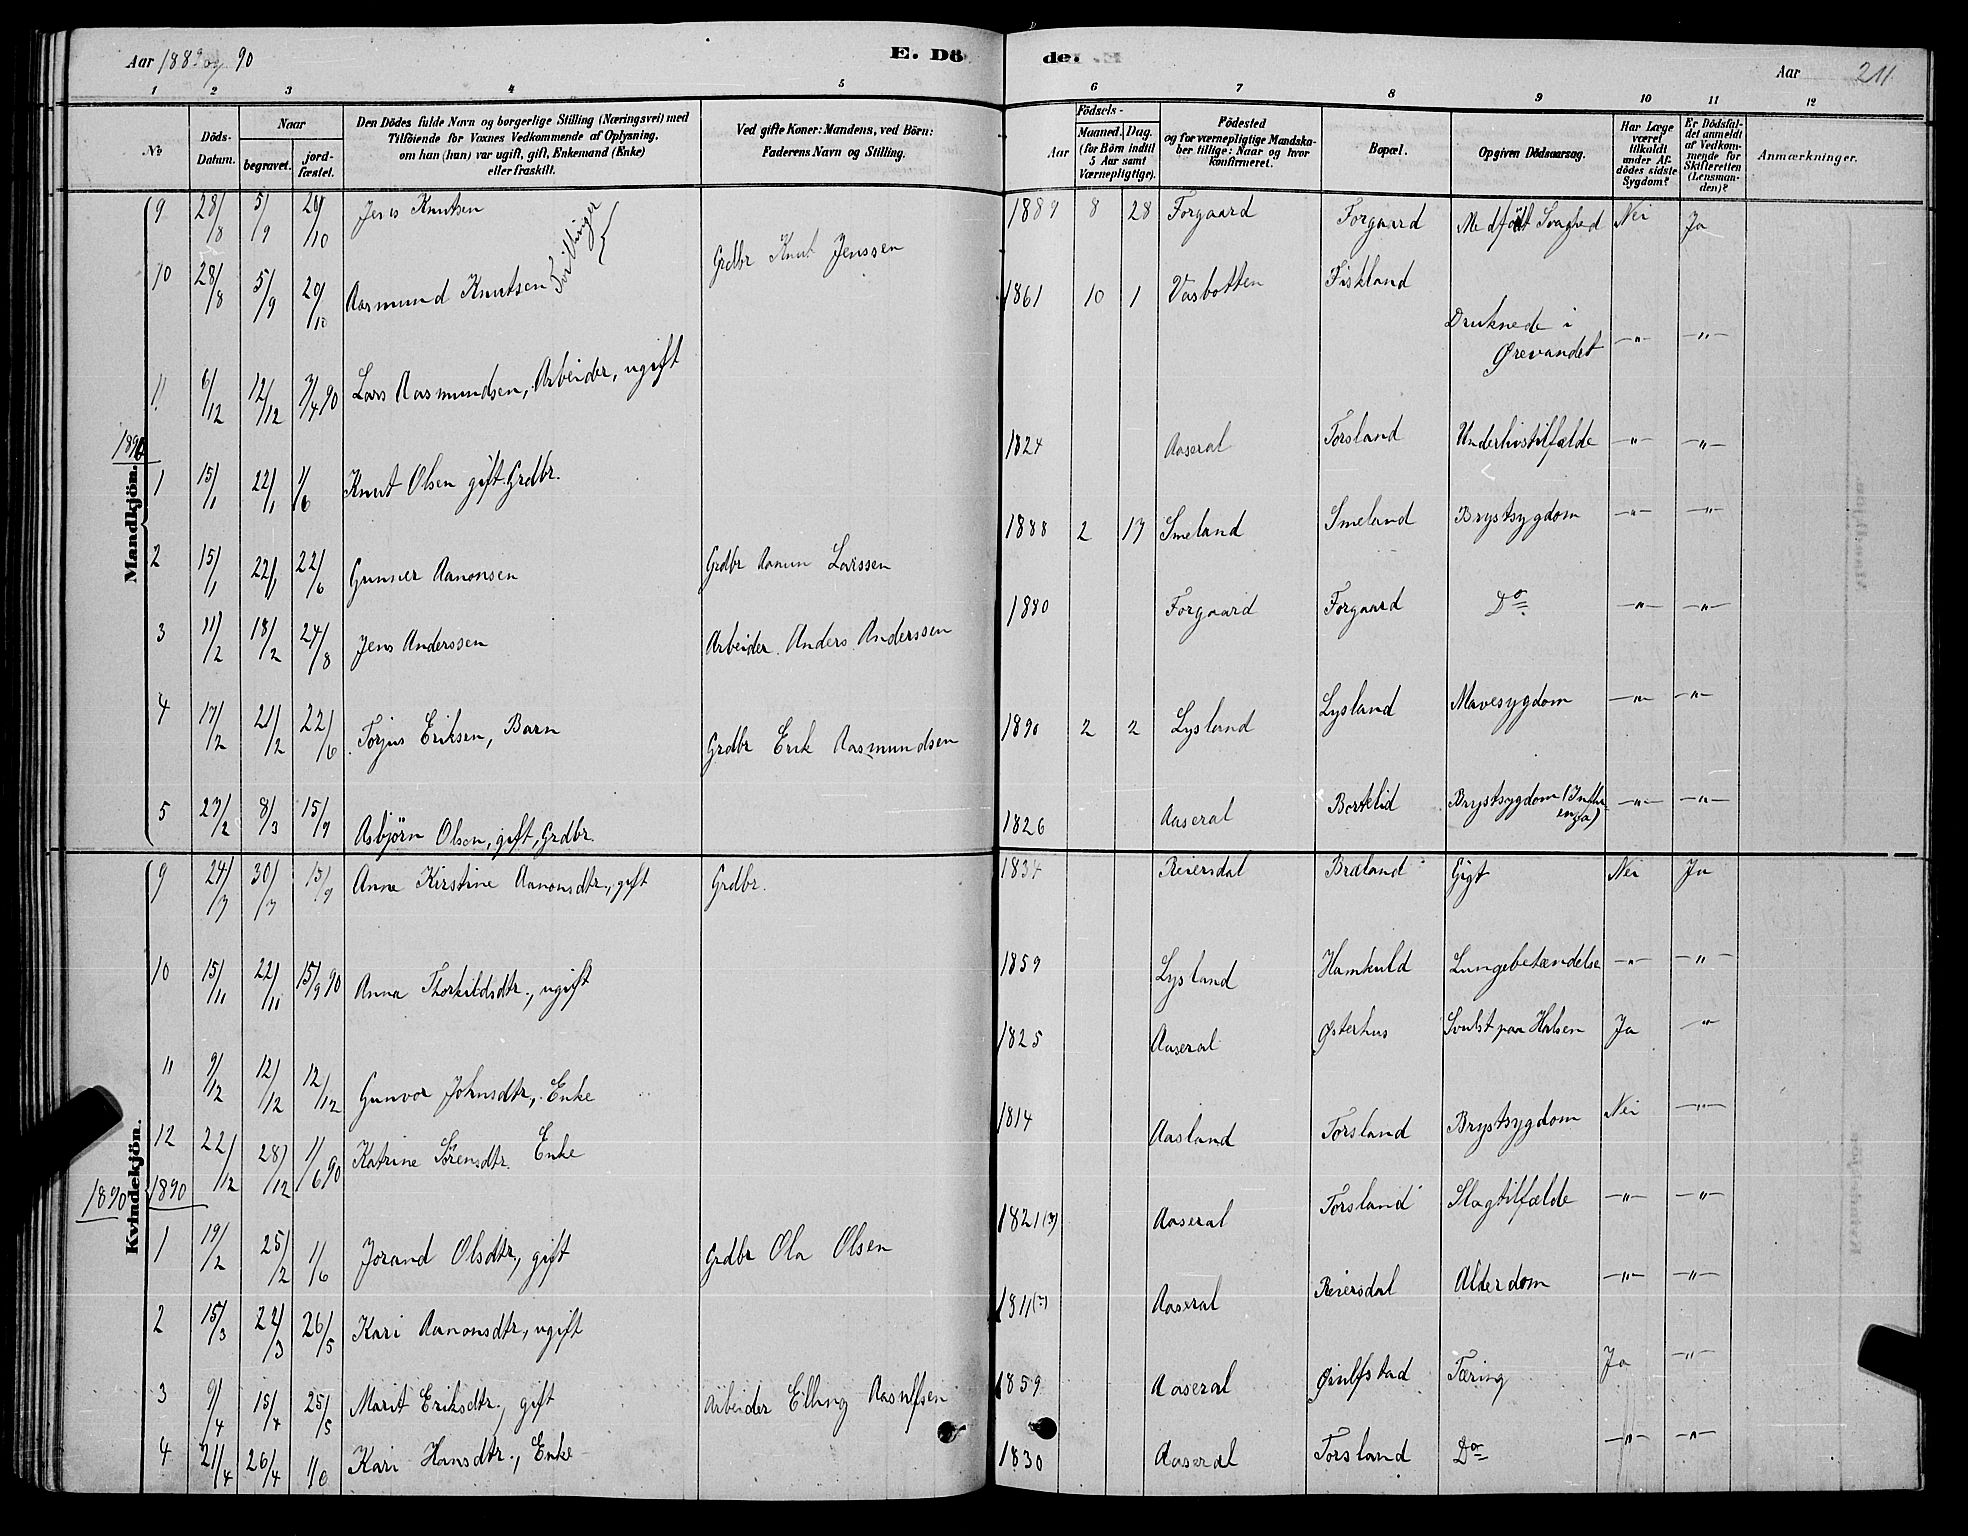 Aar 1889 og 90 E. Döde. Aar 211
1 2 3 4 5 6 7 8 9 10 11 12
No Döds-Datum. Naar begravet. jordfæstet. Den Dödes fulde Navn og borgerlige Stilling (Næringsvei) med Tilföiende for Voxnes Vedkommende af Oplysning, om han (hun) var ugift, gift, Enkemand (Enke) eller fraskilt. Ved gifte Koner: Mandens, ved Börn: Faderens Navn og Stilling. Födsels- Aar Maaned. Dag. (for Börn indtil 5 Aar samt Værnepligtige). Födested og for værnepligtige Mandskaber tillige: Naar og hvor konfirmeret. Bopæl. Opgiven Dödsaarsag. Har Læge været tilkaldt under Afdödes sidste Sygdom? Er Dödsfaldet anmeldt af Vedkommende for Skifteretten (Lensmanden)? Anmærkninger.
Mandkjön.
9 28/8 5/9 20/10 Jens Knutsen Tvillinger 1889 8 28 Forgaard Forgaard Medfødt Svaghed Nei Ja
10 28/8 5/9 20/10 Aasmund Knutsen Grdbr Knut Jenssen
11 6/12 12/12 3/4 90 Lars Aasmundsen, Arbeider, ugift 1861 10 1 Vasbotten Fiskland Druknede i Ørevandet -"- -"-
1890
1 15/1 22/1 1/6 Knut Olsen gift Grdbr. 1824 Aaseral Torsland Underlivstilfælde -"- -"-
2 15/1 22/1 22/6 Gunner Aanonsen Grdbr Aanun Larssen 1888 2 17 Smeland Smeland Brystsygdom -"- -"-
3 11/2 18/2 24/8 Jens Anderssen Arbeider Anders Anderssen 1880 Forgaard Forgaard Do -"- -"-
4 17/2 21/2 22/6 Torjus Eriksen, Barn Grdbr Erik Aasmundsen 1890 2 2 Lysland Lysland Mavesygdom -"- -"-
5 27/2 8/3 15/9 Asbjörn Olsen, gift, Grdbr. 1826 Aaseral Bortelid Brystsygdom (Influenza) -"- -"-
Kvindekjön.
9 24/7 30/7 15/9 Anne Kirstine Aanonsdtr., gift Grdbr. 1834 Reiersdal Bræland Gigt Nei Ja
10 15/11 22/11 15/9 90 Anna Thorkildsdtr., ugift 1859 Lysland Hamkuld Lungebetændelse -"- -"-
11 9/12 12/12 12/12 Gunvor Johnsdtr., Enke 1825 Aaseral Østerhus Svulst paa Halsen Ja "
12 22/12 28/12 1/6 90 Katrine Sörensdtr. Enke 1814 Aasland Torsland Brystsygdom Nei -"-
1890 1890
1 19/2 25/2 1/6 Jorand Olsdtr., gift Grdbr Ola Olsen 1821 (?) Aaseral Torsland Slagtilfælde -"- -"-
2 15/3 22/3 26/5 Kari Aanonsdtr, ugift 1811 (?) Aaseral Reiersdal Alderdom -"- -"-
3 9/4 15/4 25/5 Marit Eriksdtr., gift Arbeider Elling Aasulfsen 1859 Aaseral Øiulfstad Tæring Ja -"-
4 21/4 26/4 1/6 Kari Hansdtr., Enke 1830 Aaseral Torsland Do -"- -"-